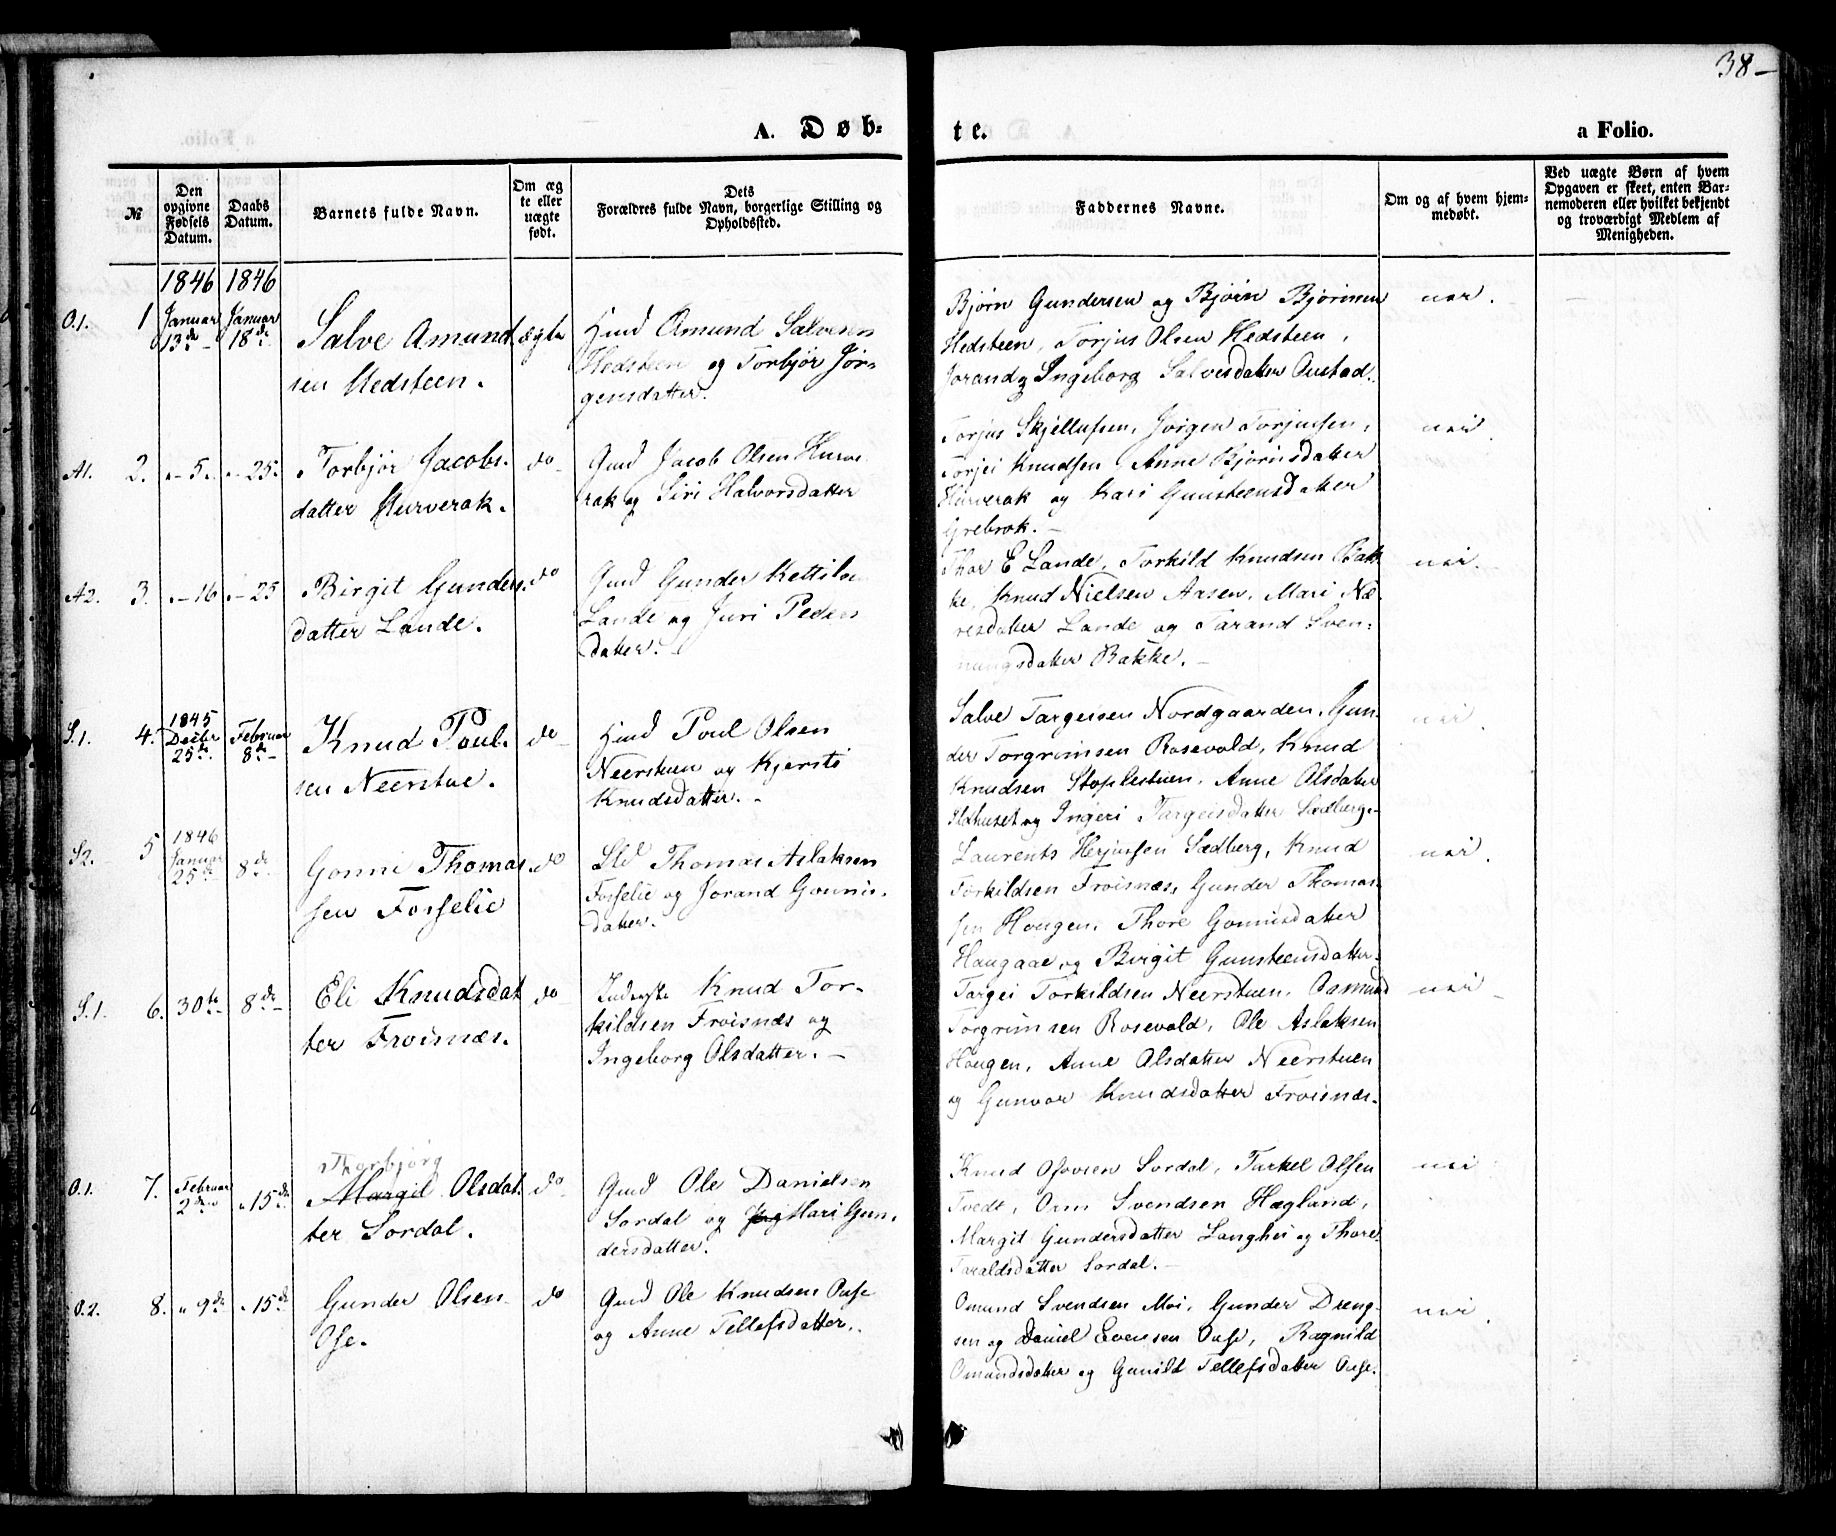 38-
A. Døb-
te.
a Folio.
№
Den opgivne Fødsels Datum.
Daabs Datum.
Barnets fulde Navn.
Om ægte eller uægte født.
Dets Forældres fulde Navn, borgerlige Stilling og Opholdssted.
Faddernes Navne.
Om og af hvem hjemmedøbt.
Ved uægte Børn af hvem Opgaven er skeet, enten Barnemoderen eller hvilket bekjendt og troværdigt Medlem af Menigheden.
1846 1846
O.1. 1 Januar 13de Januar 18de
Salve Amund
sen Hedsteen.
ægte
Hmd Amund Salvesen
Hedsteen og Torbjør Jør-
gensdatter.
Bjørn Gundersen og Bjørn Bjørnsen
Hedsteen, Torjus Olsen Hedsteen,
Jorand og Ingeborg Salvesdatter Austad.
nei.
A1. 2. 5. 25.
Torbjør Jacobs-
datter Hurverak.
do
Gmd Jacob Olsen Hurve
rak og Siri Halvorsdatter
Torjus Skjellufsen, Jørgen Torjusen,
Torjei Knudsen, Anne Bjørnsdatter
Hurverak og Kari Gunsteensdatter
Grebrok.
nei
A2. 3. 16 25
Birgit Gunders-
datter Lande.
do
Gmd Gunder Kettils
Lande og Juri Peders
datter.
Thor E Lande, Torkild Knudsen Bak
ke, Knud Nielsen Aasen, Mari Næ-
resdatter Lande og Tarand Sven-
nungsdatter Bakke.
nei.
S.1. 4. 1845 Decbr 25de Februar 8de
Knud Poul-
sen Neerstue.
do
Hmd Poul Olsen
Neerstuen og Kjersti
Knudsdatter.
Salve Targeisen Nordgaarden, Gun-
der Torgrimsen Rosevold, Knud
Knudsen Stoplestuen, Anne Olsdatter
og Ingeri Targeisdatter Sædberge
nei
S2. 5 1846 Januar 25de 8de
Gonni Thomas
sen Fosselie
do
Thomas Aslaksen
Fosselie og Jorand Gonnis-
datter.
Laurents Herjusen Sædberg, Knud
Torkildsen Froisnæs, Gunder Thomas-
sen Hougen, Thore Gonnisdatter
Haugaae og Birgit Gunsteensdatter.
nei.
S.1. 6. 30te 8de
Eli Knudsdat
ter Froisnæs.
do
Inderste Knud Tor-
kildsen Froisnæs og
Ingeborg Olsdatter.
Targei Torkildsen Neerstuen, Aasmund
Torgrimsen Rosevold, Ole Aslaksen
Hougen, Anne Olsdatter Neerstuen
og Gunvor Knudsdatter Froisnæs.
nei
O.1. 7. Februar 2den 15de
Thorbjørg
Margit Olsdat-
ter Sordal.
do
Gmd Ole Danielsen
Sordal og Mari Gun-
dersdatter.
Knud Osovsen Sordal, Turkel Olsen
Tvedt, Orm Svendsen Hægland,
Margit Gundersdatter Langhei og Thore
Taraldsdatter Sordal.
nei
O.2. 8. 9de 15de
Gunder Olsen
Ose.
do
Gmd Ole Knudsen Ouse
og Anne Tellefsdatter.
Omund Svendsen Moi, Gunder Dreng-
sen og Daniel Evensen Ouse, Ragnild
Omundsdatter og Gunild Tellefsdatter Ouse.
nei